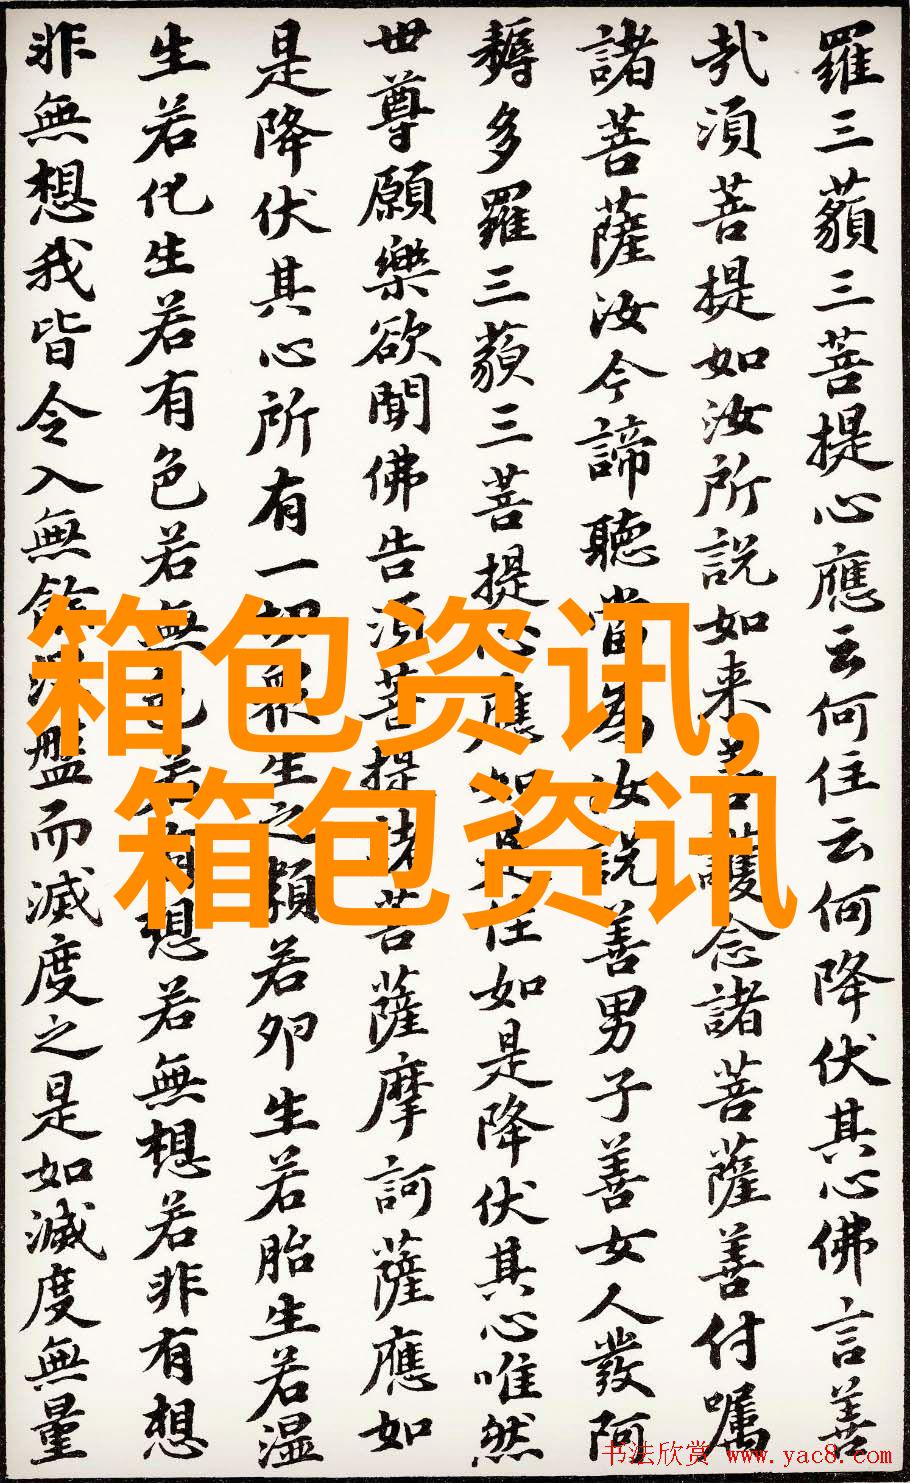 羅三藐三菩提心應云何住云何降伏其心佛言善
哉須菩提如汝所説如来善護念諸菩薩善付嘱
諸菩薩汝今諦聽當為汝説善男子善女人發阿
耨多羅三藐三菩提心應如是住如是降伏其心唯然
世尊願樂欲聞佛告須菩提諸菩薩摩訶薩應如
是降伏其心所有一切眾生之類若卵生若胎生若温
生若化生若有色若無色若有想若無想若非有想
非無想我皆令入無餘涅盤而滅度之是如滅度無量
箱包资讯,
箱包资讯
书法欣赏 www.yac8.com